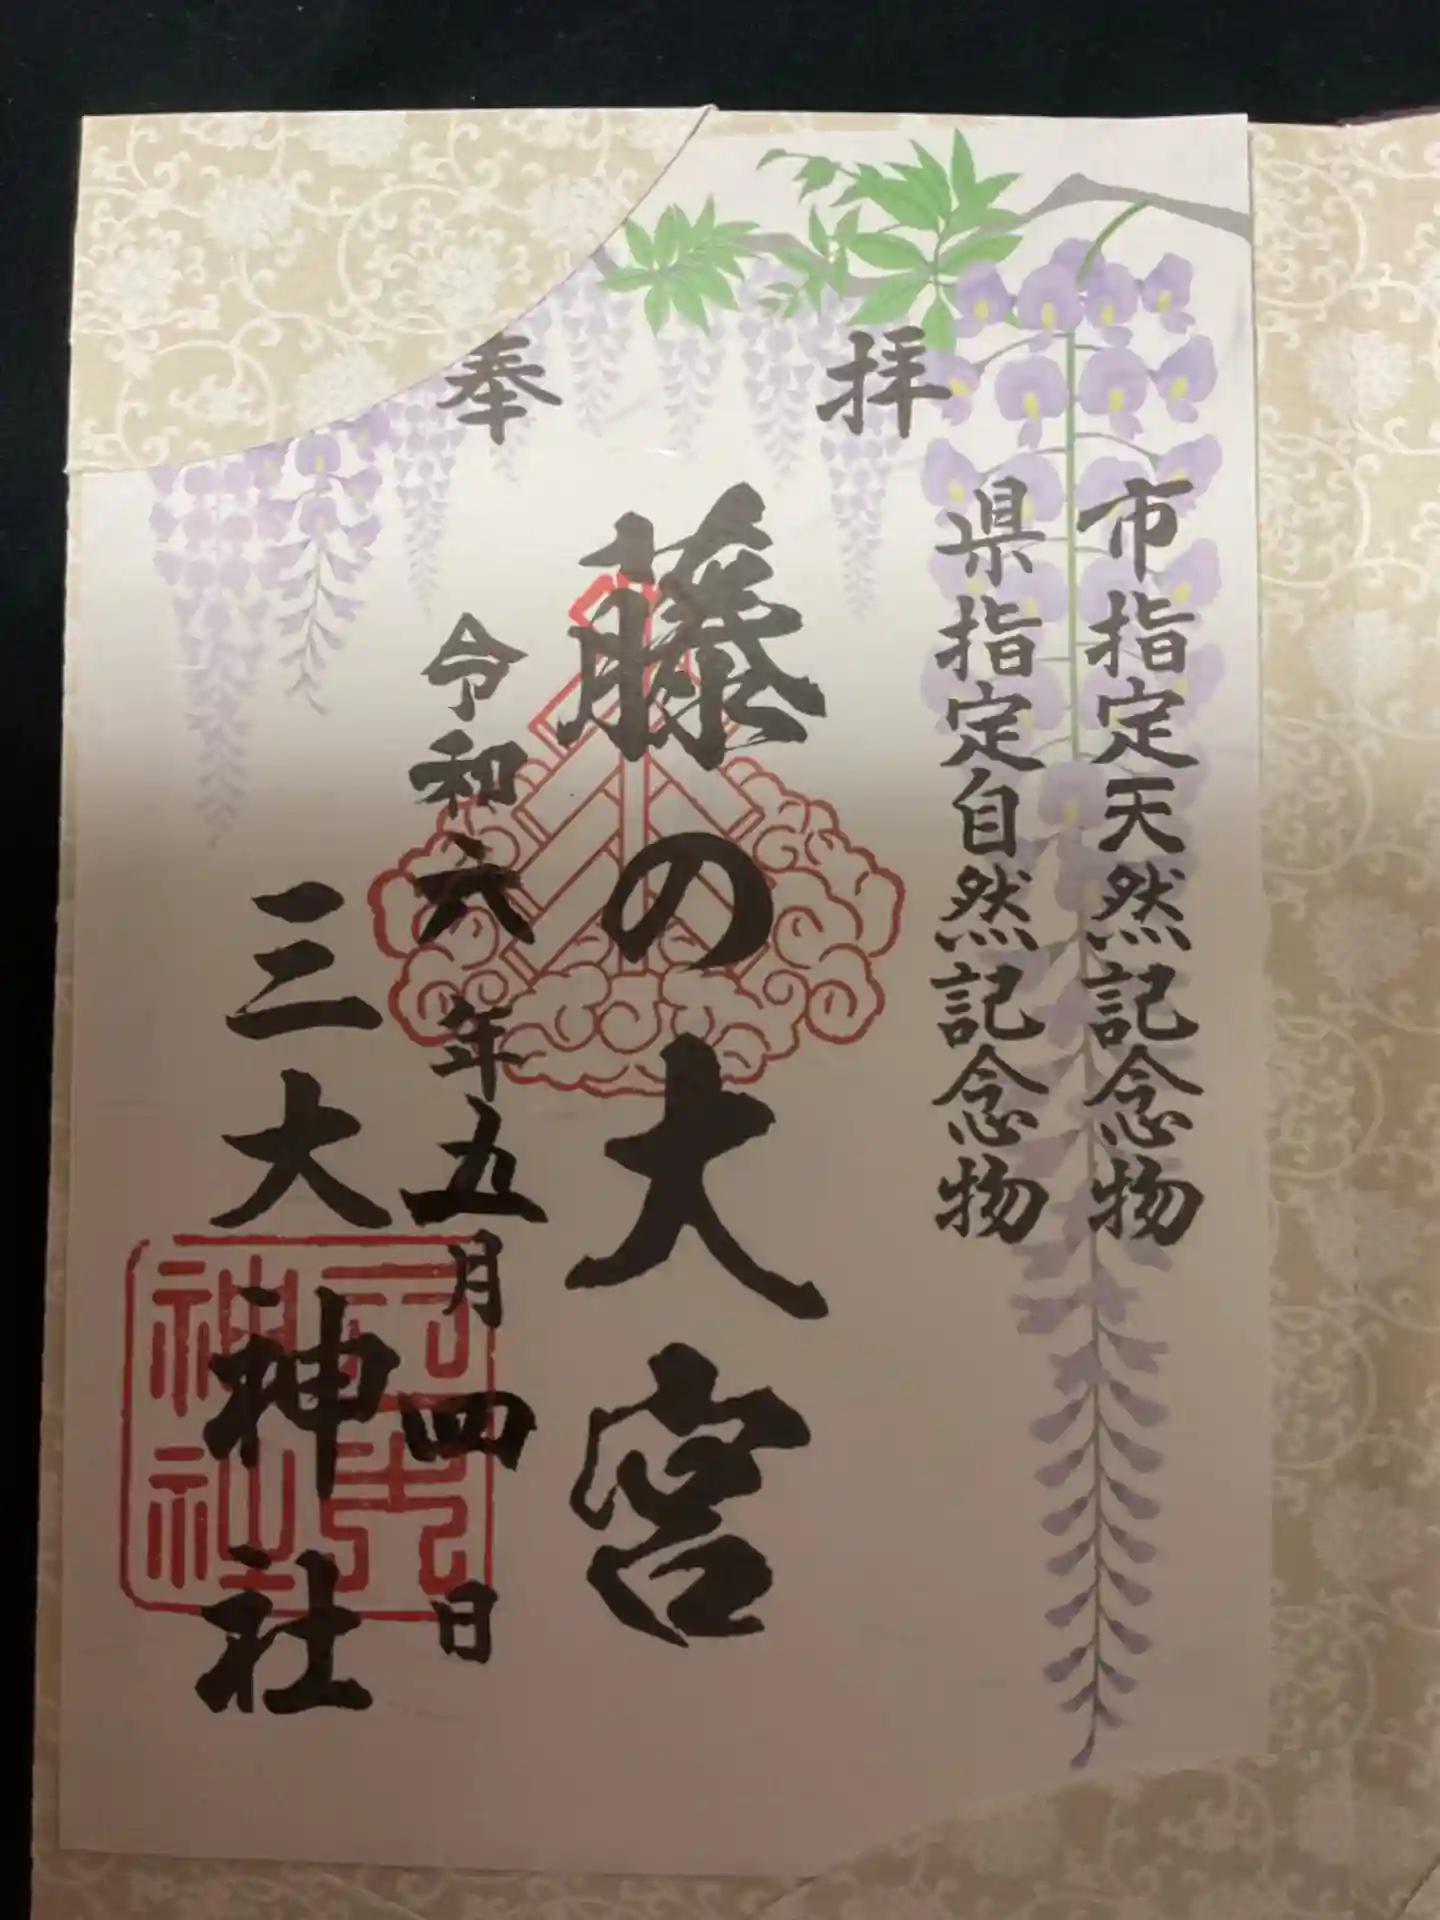 奉拝
市指定天然記念物
県指定自然記念物
藤の大宮
令和六年五月四日
三大神社
三大神社